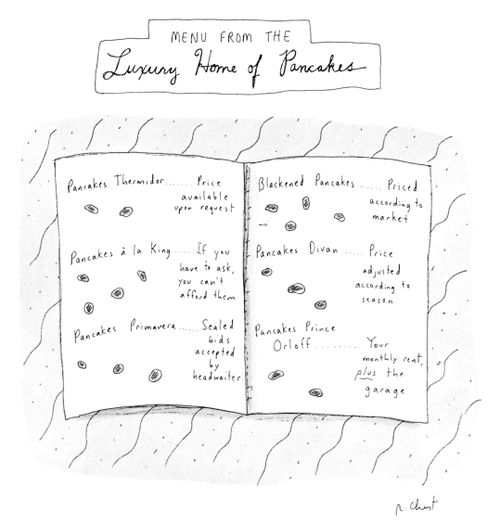 MENU FROM THE
Luxury Home of Pancakes
Pancakes Thermidor...... Price
available
upon request
Pancakes à la King .... If you
have to ask,
you can't
afford them
Pancakes Primavera..... Sealed
bids
accepted
by
headwaiter
Blackened Pancakes ..... Priced
according to
market
Pancakes Divan ..... Price
adjusted
according to
season
Pancakes Prince
Orloff .......... Your
monthly rent,
plus the
garage
R. Chast